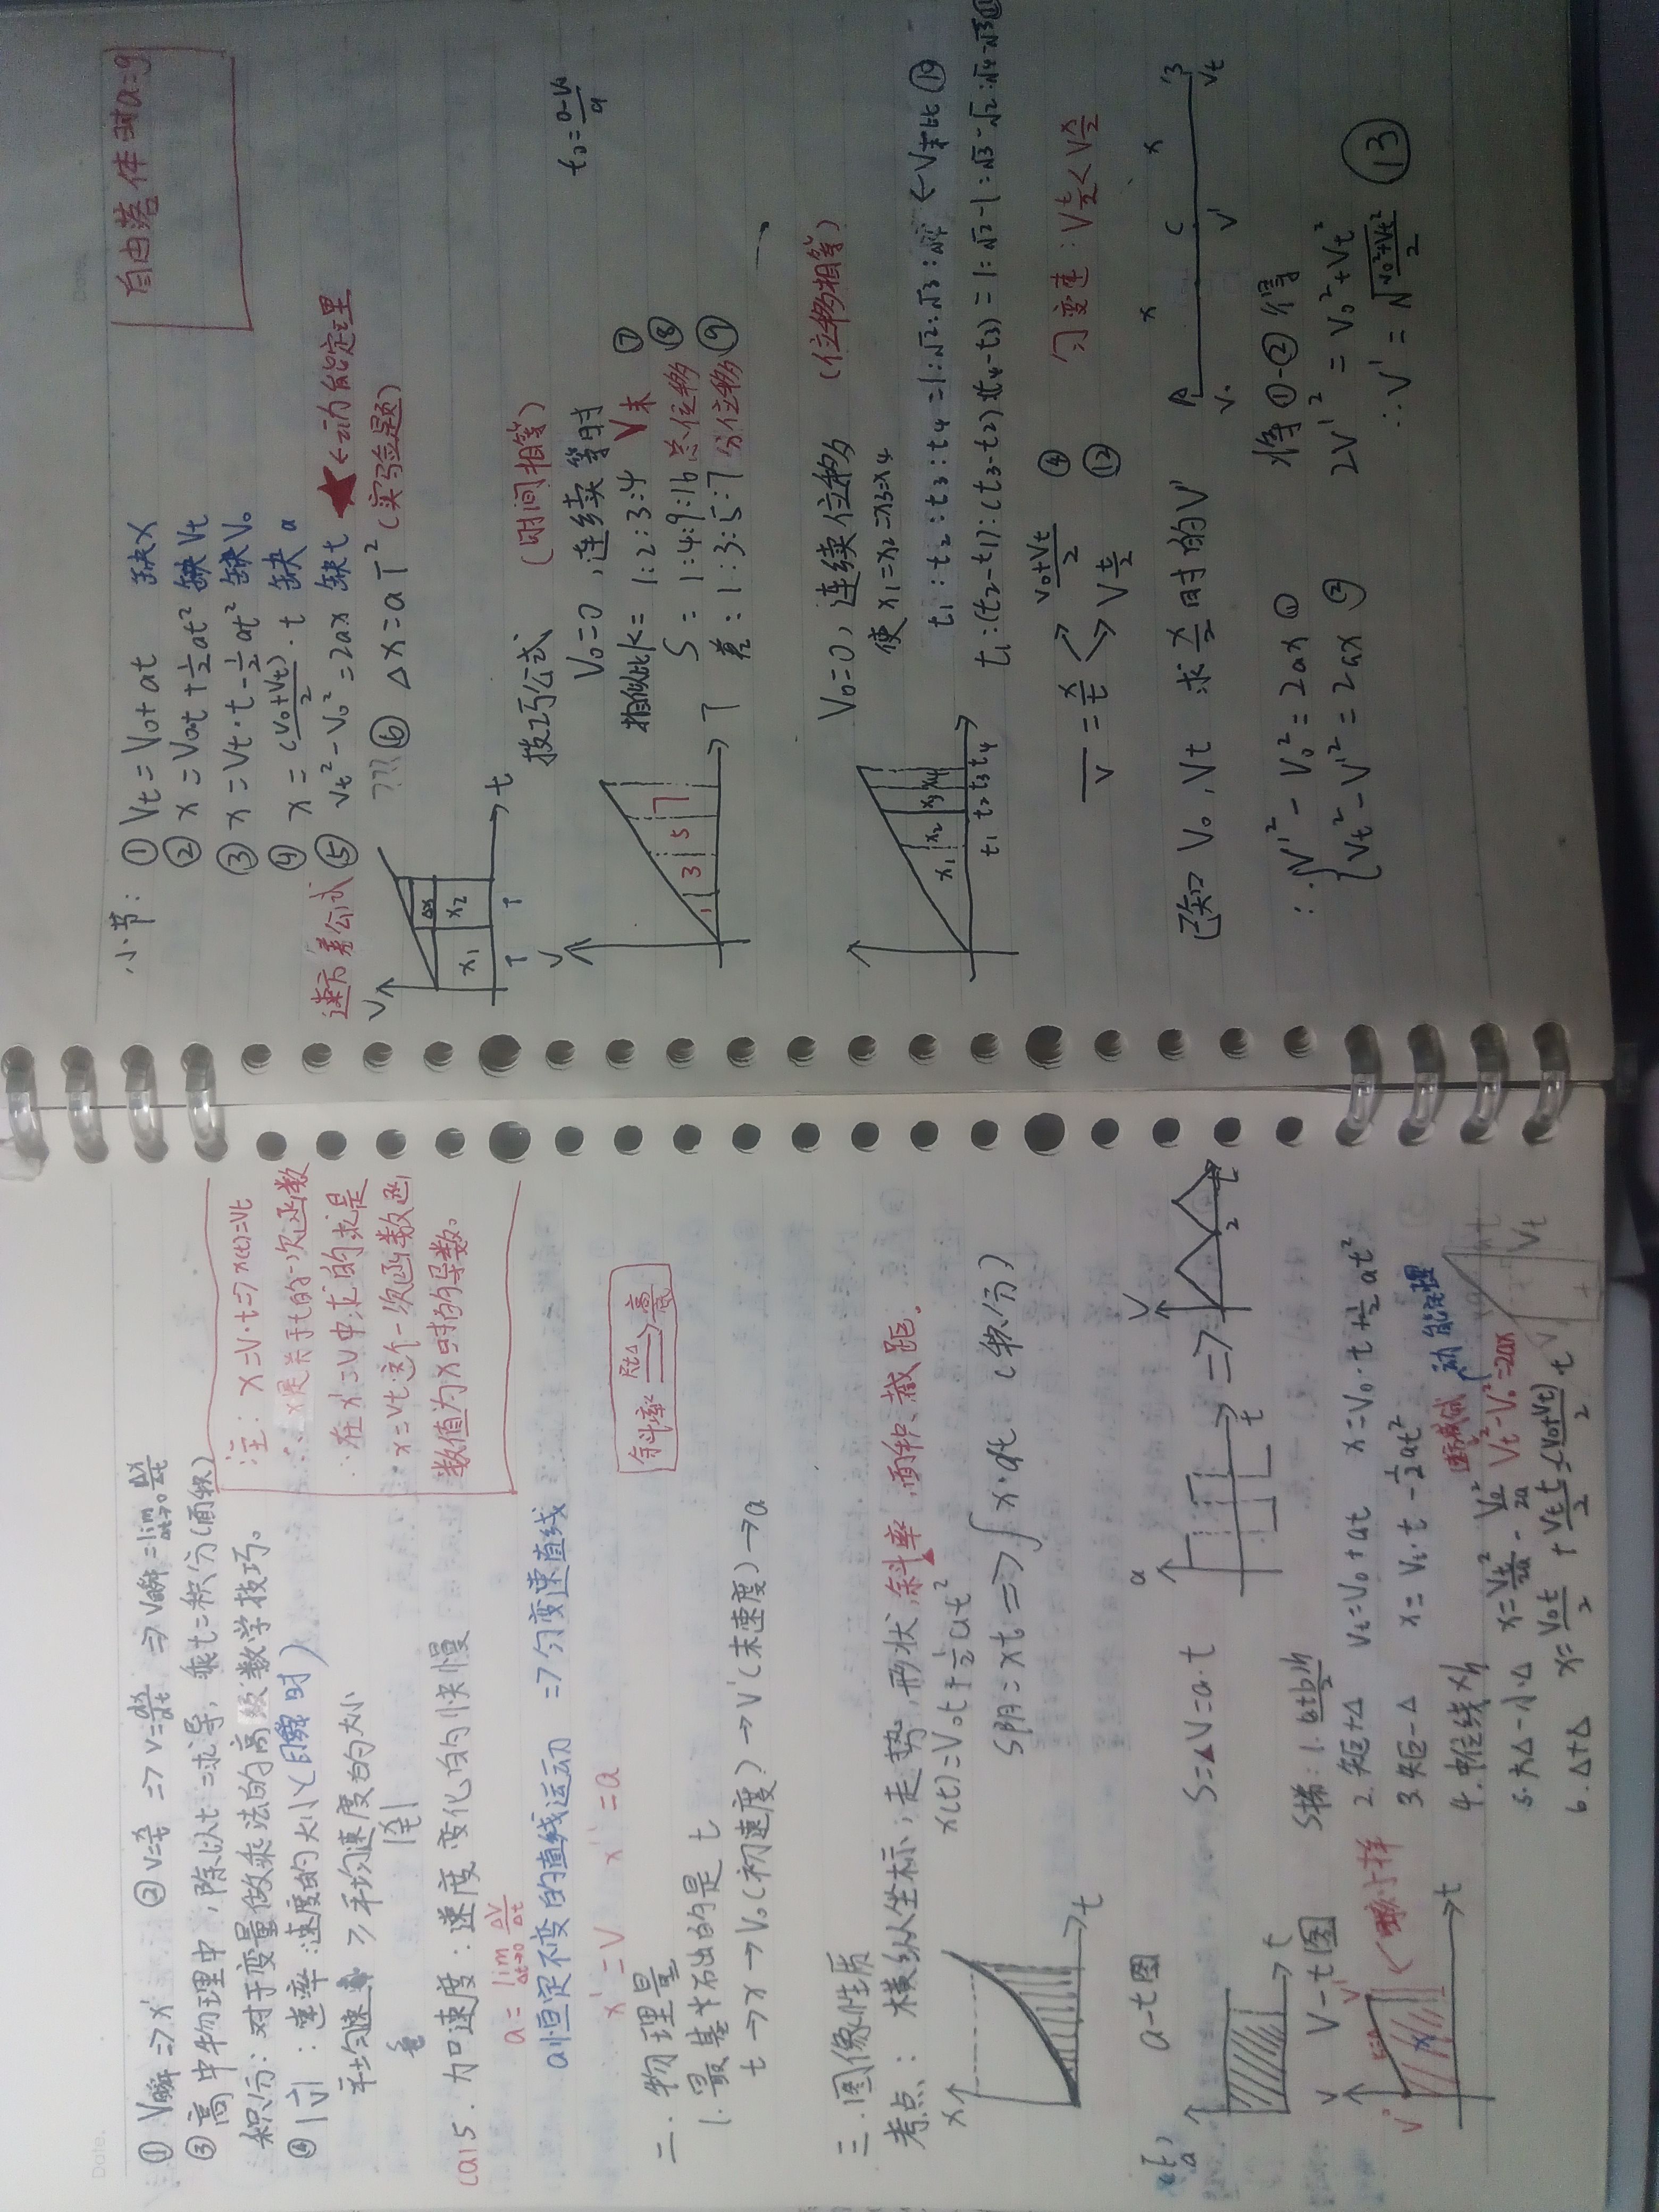 Date.
① V瞬 => x' ② v=x/t => v=Δx/Δt => V瞬=lim Δt→0 Δx/Δt
③ 高中物理中,除以t=求导,乘t=积分(面积)
积分:对于变量做乘法的高级数学技巧。
④ |v|:速率:速度的大小(瞬时)
平均速率 ≥ 平均速度的大小
注:x=V·t=>x(t)=Vt
∴x是关于t的一次函数
∴在x'=V中求的求是
x=Vt这个一次函数函
数值为x时的导数。
(a) 5.加速度:速度变化的快慢
a=lim Δt→0 ΔV/Δt
a恒定不变的直线运动 =>匀变速直线
x'=V x''=a
二.物理量
1.最基本的是t
t→x→V₀(初速度)→V'(末速度)→a
三.图像性质
考点:横纵坐标,走势,形状,斜率,面积,截距.
x(t)=V₀t+½at²
x
t
S阴=xt => ∫x·dt (积分)
a-t图
a
t
S=ΔV=a·t
a
t
=>
V
2
t
V-t图
V
t
x
S梯:1.(a+b)h/2
2.矩+△ Vt=V₀+at x=V₀·t+½at²
3.矩-△ x=Vt·t-½at²
4.中位线×h
5.大△-小△ x=Vt²/2a-V₀²/2a Vt²-V₀²=2ax 动能定理
6.△+△ x=V₀t/2+Vt t/2=(V₀+Vt)/2·t
Date.
自由落体时a=g
小节:① Vt=V₀+at 缺x
② x=V₀t+½at² 缺Vt
③ x=Vt·t-½at² 缺V₀
④ x=(V₀+Vt)/2·t 缺a
速方差公式 ⑤ Vt²-V₀²=2ax 缺t ★←动能定理
???⑥ Δx=aT² (实验题)
V
x₁
Δx
x₂
T
T
t
技巧公式 (时间相等)
V₀=0,连续等时
相似比k=1:2:3:4 V末 ⑦
S:1:4:9:16总位移⑧
差:1:3:5:7分位移⑨
V
1
3
5
7
T
V₀=0,连续位移 (位移相等)
使x₁=x₂=x₃=x₄
x₁
x₂
x₃
x₄
t₁ t₂ t₃ t₄
t₁:t₂:t₃:t₄=1:√2:√3:√4
t₁:(t₂-t₁):(t₃-t₂):(t₄-t₃)=1:√2-1:√3-√2:√4-√3
V̄=x/t
(V₀+Vt)/2 ④
V t/2 ⑫
匀变速:V t/2 < V x/2
已知V₀,Vt 求x/2时的V'
x
C
x
V₀
V'
Vt
∴{V'²-V₀²=2ax ①
Vt²-V'²=2ax ②
将①-②得
2V'²=V₀²+Vt²
∴V'=√((V₀²+Vt²)/2) ⑬